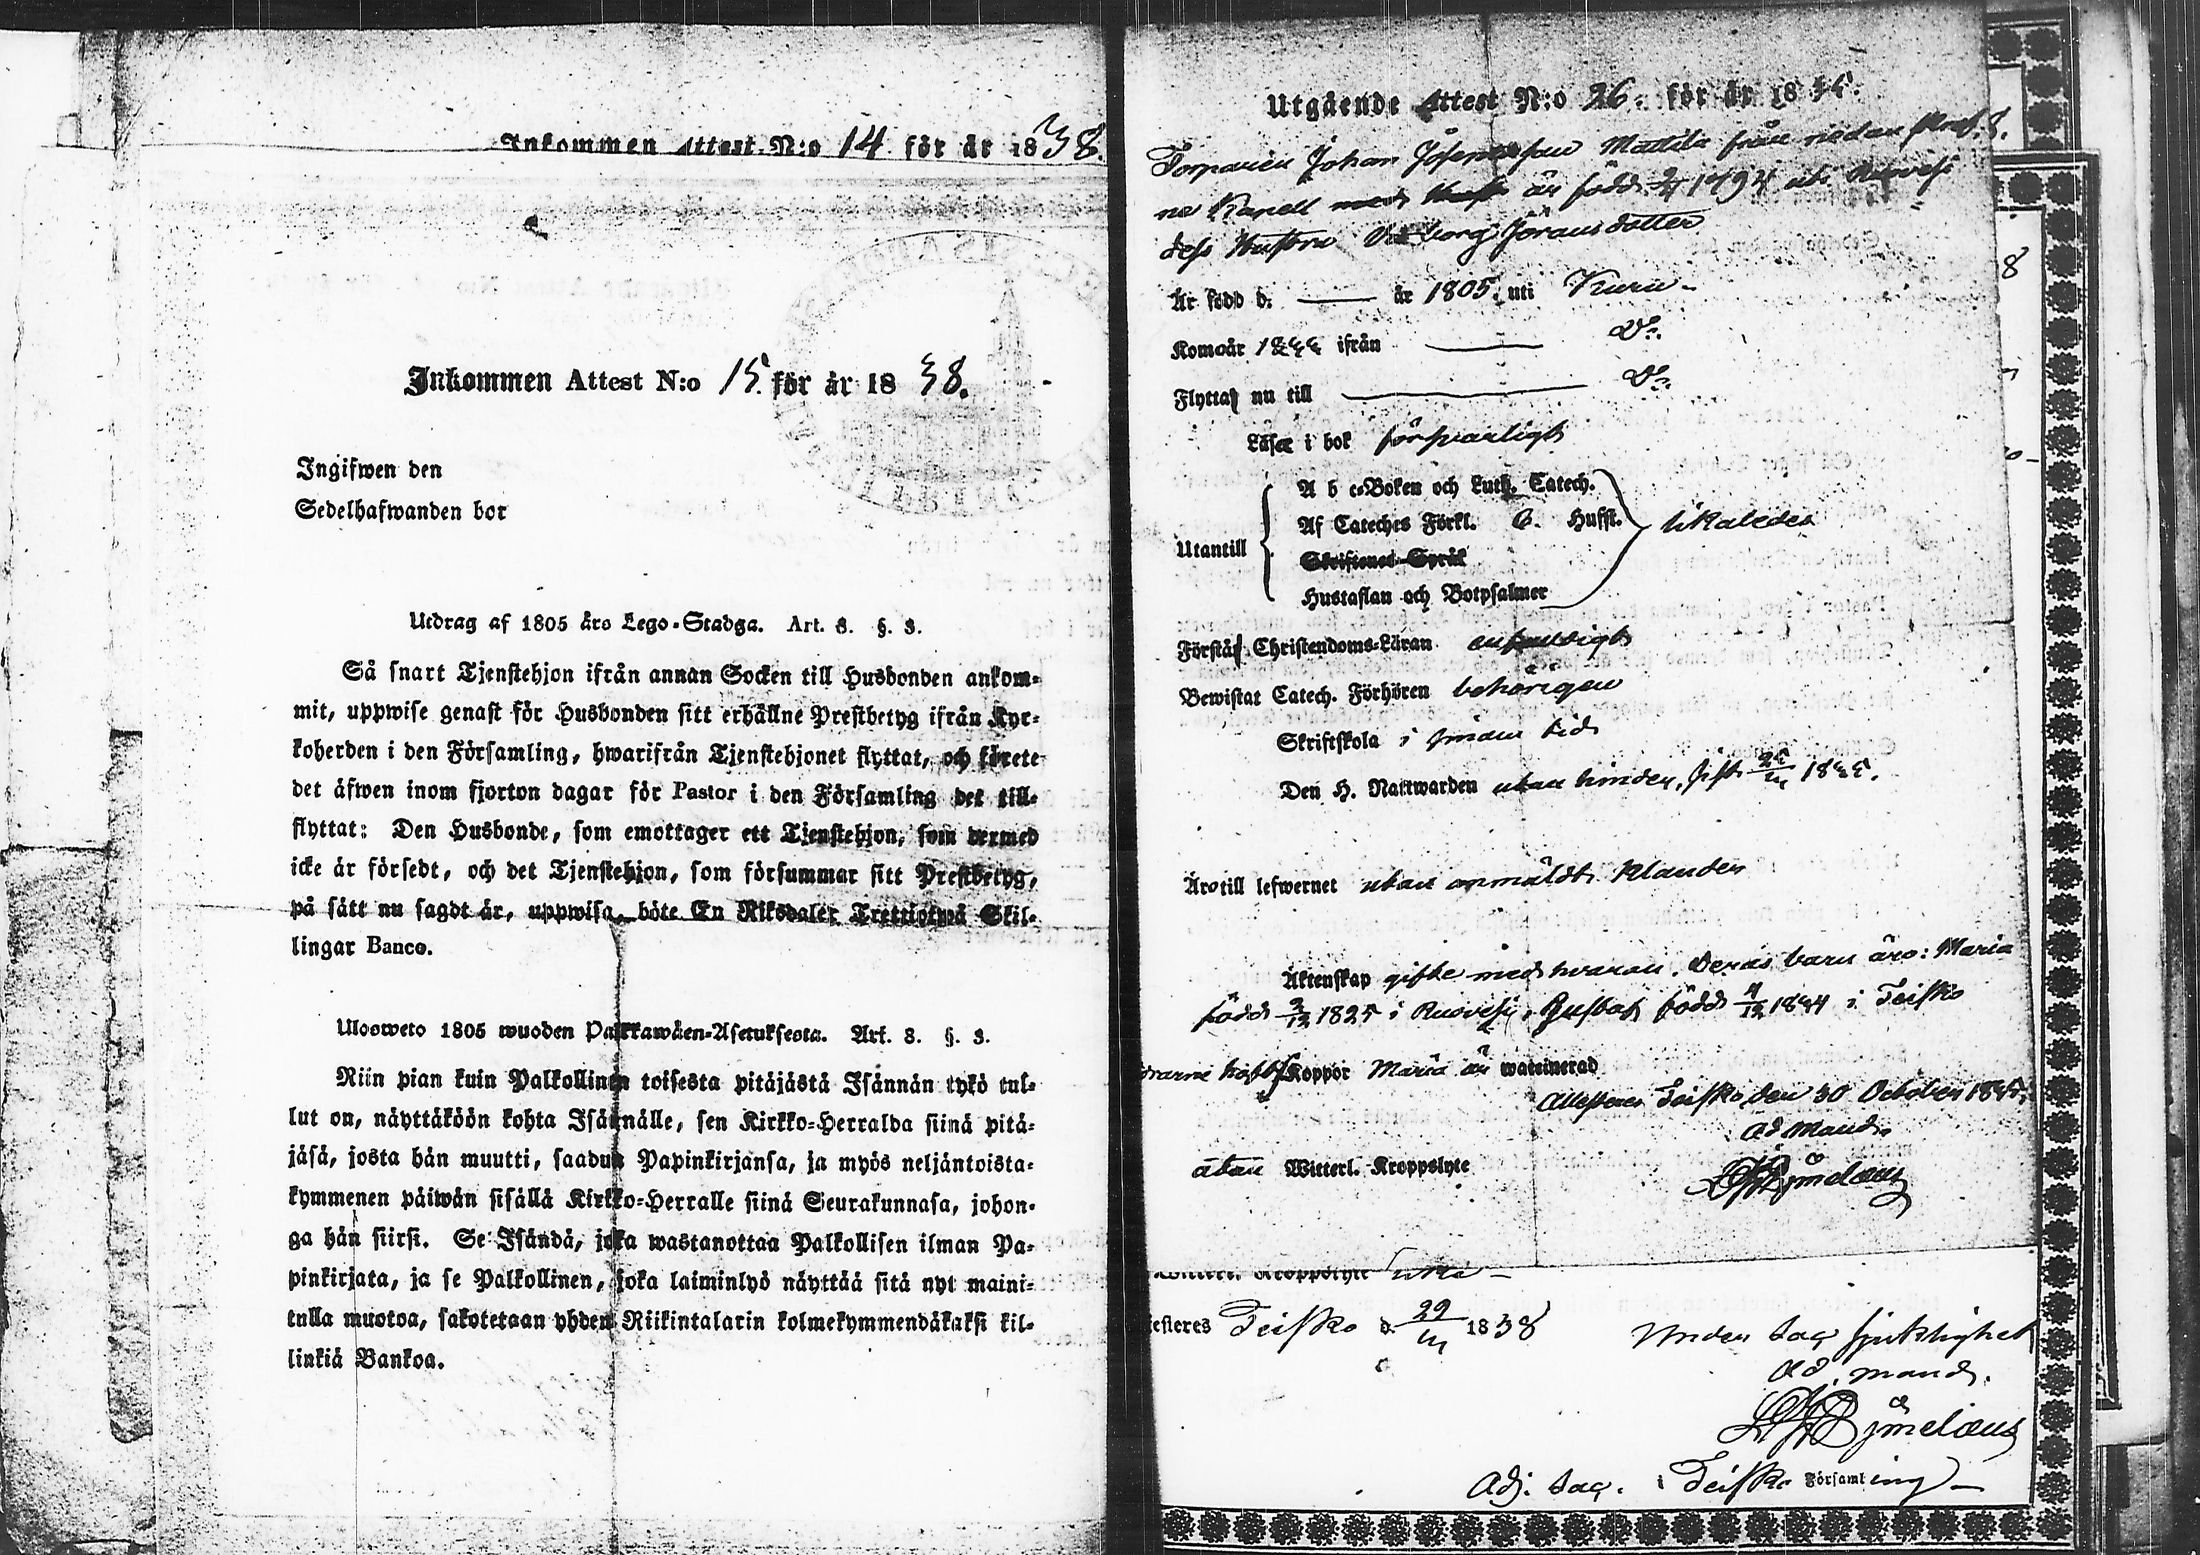 Inkommen Attest N:o 14 för är 1838.
Inkommen Attest N:o 15 för år 1838.
Ingifwen den
Sedelhafwanden bor
Utdrag af 1805 års Lego-Stadga. Art. 8. §. 3.
Så snart Tjenstehjon ifrån annan Socken till Husbonden ankom-
mit, uppwise genast för Husbonden sitt erhållne Prestbetyg ifrån Kyr-
koherden i den Församling, hwarifrån Tjenstehjonet flyttat, och förete
det äfwen inom fjorton dagar för Pastor i den Församling det till-
flyttat: Den Husbonde, som emottager ett Tjenstehjon, som dermed
icke är försedt, och det Tjenstehjon, som försummar sitt Prestbetyg,
på sätt nu sagdt är, uppwisa, böte En Riksdaler Trettiotwå Skil-
lingar Banco.
Ulosweto 1805 wuoden Palkkawäen-Asetuksesta. Art. 8. §. 3.
Niin pian kuin Palkollinen toisesta pitäjästä Isännän tykö tul-
lut on, näyttäköön kohta Isännälle, sen Kirkko-Herralda siinä pitä-
jäsä, josta hän muutti, saadun Papinkirjansa, ja myös neljäntoista-
kymmenen päiwän sisällä Kirkko-Herralle siinä Seurakunnasa, johon-
ga hän siirsi. Se Isändä, joka wastanottaa Palkollisen ilman Pa-
pinkirjata, ja se Palkollinen, joka laiminlyö näyttää sitä nyt maini-
tulla muotoa, sakotetaan yhden Riikintalarin kolmekymmendäkaksi kil-
linkiä Bankoa.
Utgående Attest N:o 26. för år 18
Torparen Johan Mattila från nedan
ne Kapell med är född 1794 uti Ruovesi
dess Hustru Valborg Göransdotter
Är född d. — år 1805. uti Kuru
Kom år ifrån — Do.
Flyttat nu till — Do.
Läser i bok försvarligt
Utantill
A b c-Boken och Luth. Catech.
Af Cateches Förkl. Husst.
Skriftenes Språk
Hustaflan och Botpsalmer
likaledes
Förstår Christendoms-Läran enfaldigt
Bewistat Catech. Förhören behörigen
Skriftskola i sinom tid
Den H. Nattwarden utan hinder, sist
Äro till lefwernet utan anmäldt klander
Äktenskap gifte med hvaran. Deras barn äro: Maria
född 1825 i Ruovesi, Gustaf född i Teisko
Koppor Maria är waccinerad
Attesteras Teisko den 30 October
ad mand.
utan Witterl. Kroppslyte
Witterl. Kroppslyte
Teisko d. 29 1838
Under Sac. sjuklighet
ad mand.
Adj. Sac. i Teisko Församling